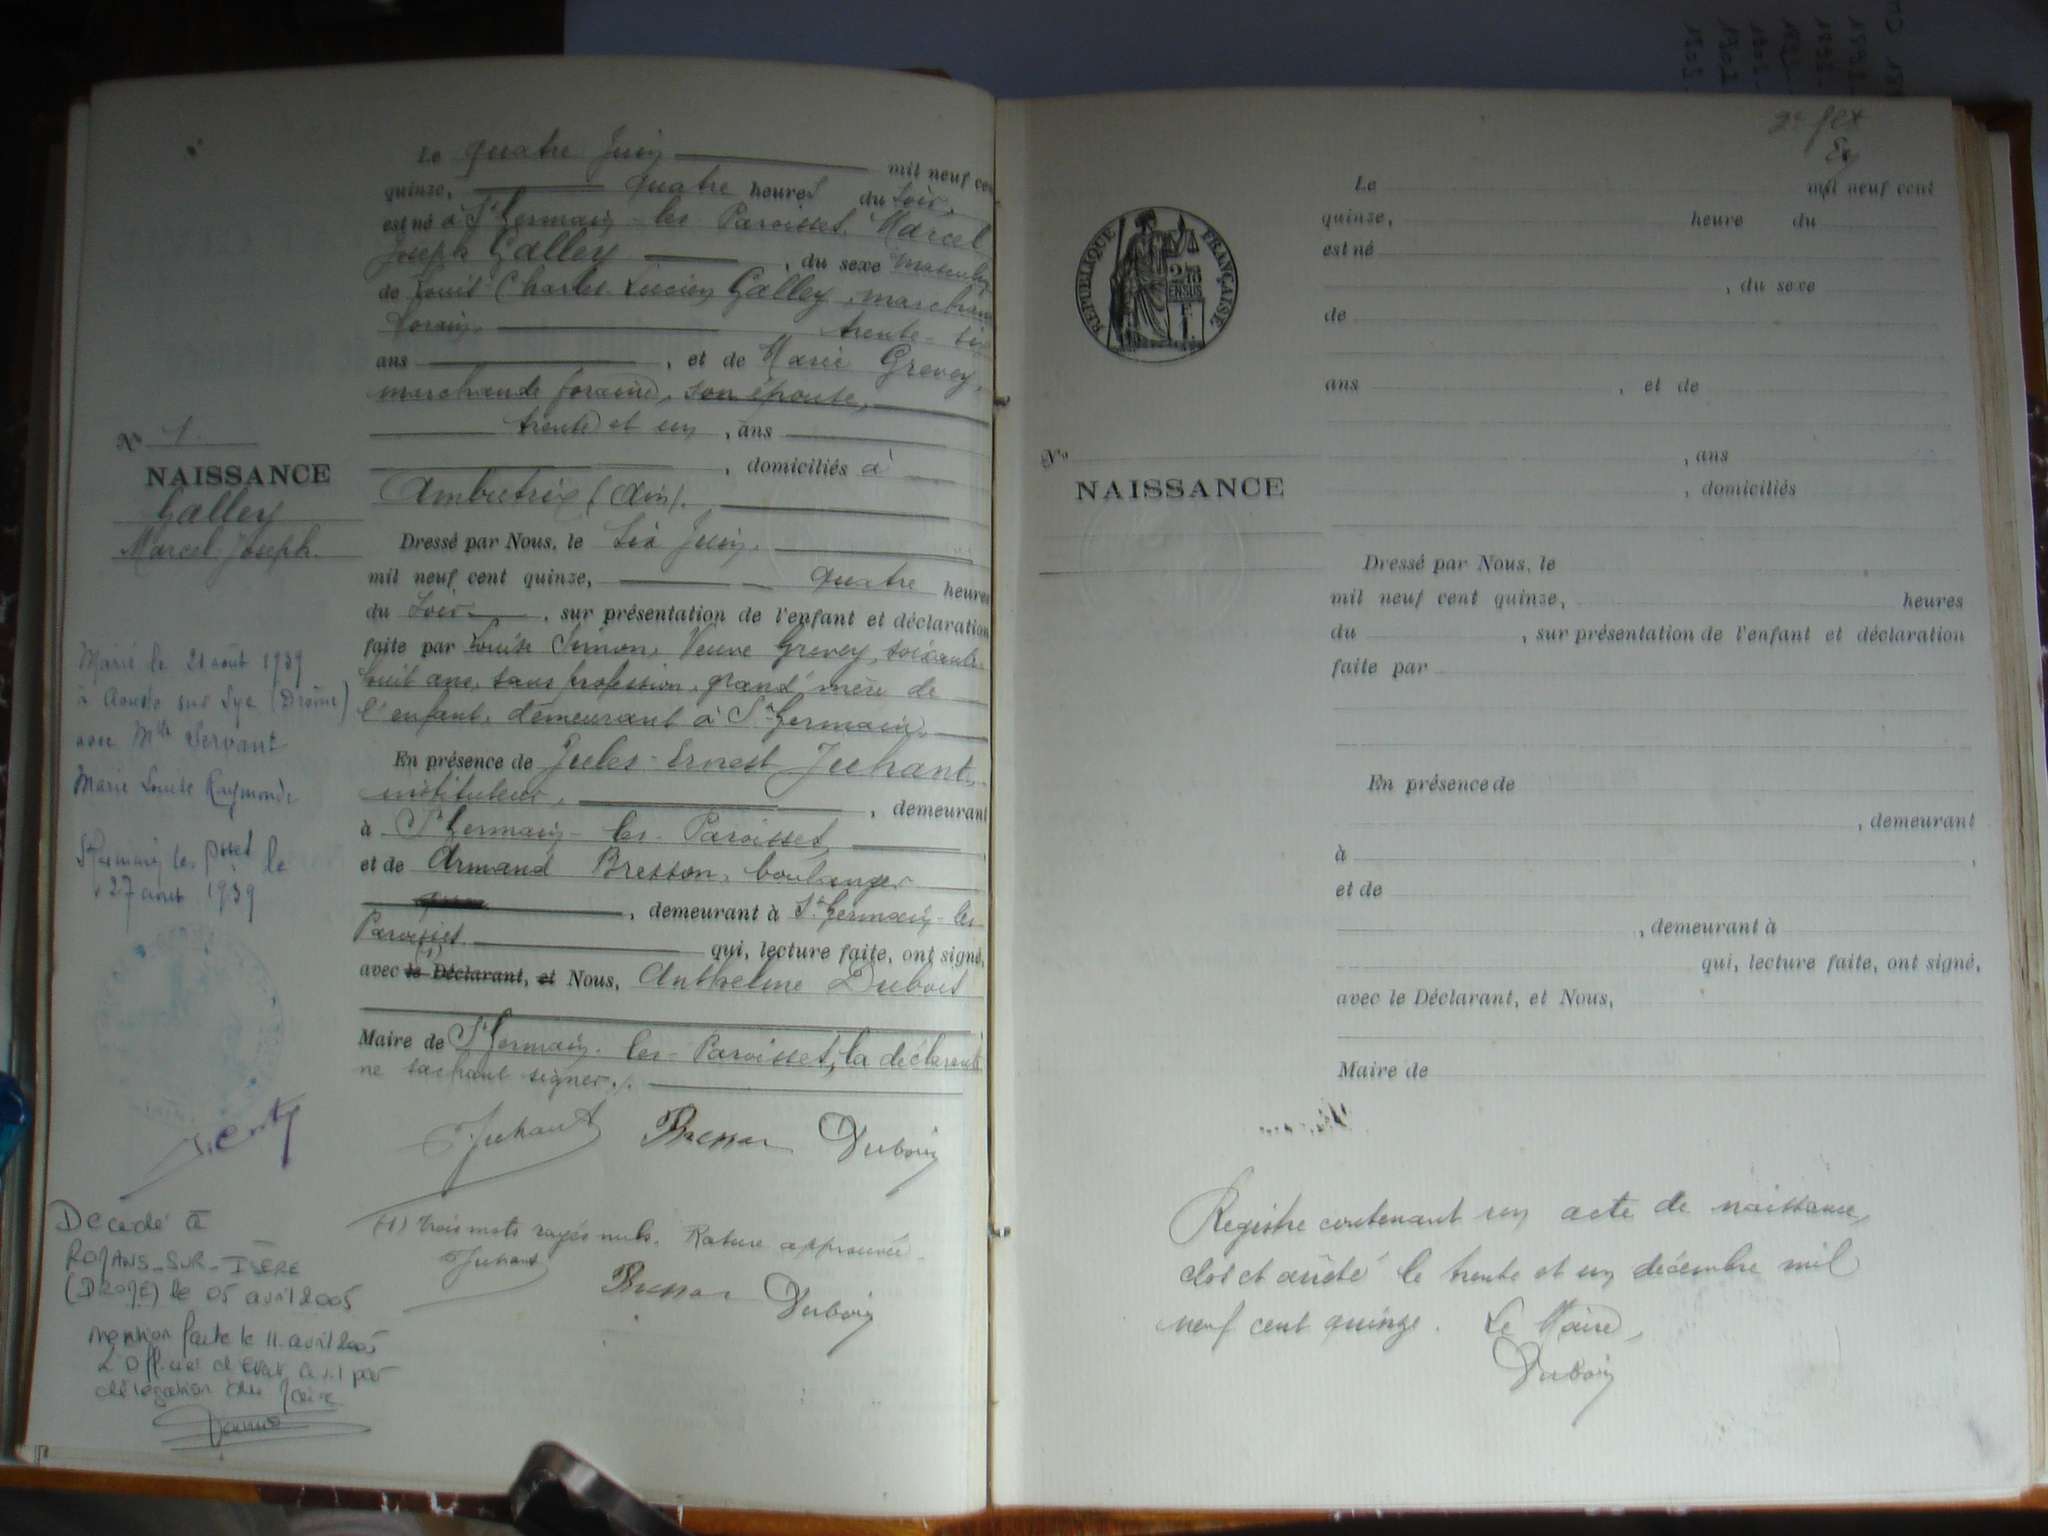 Le quatre Juin mil neuf cen
quinze, quatre heures du soir,
est né à St Germain-les-Paroisses, Marcel
Joseph Galley, du sexe masculin
de Louis Charles Lucien Galley, marchan
forain, trente-six
ans, et de Marie Grevey,
marchande foraine, son épouse,
trente et un, ans
, domiciliés à
Ambutrix (Ain).
No 1.
NAISSANCE
Galley
Marcel Joseph.
Dressé par Nous, le six Juin,
mil neuf cent quinze, quatre heures
du soir, sur présentation de l'enfant et déclaration
faite par Louise Simon, Veuve Grevey, soixante-
huit ans, sans profession, grand'mère de
l'enfant, demeurant à St Germain,
En présence de Jules-Ernest Juhant,
instituteur, demeurant
à St Germain-les-Paroisses,
et de Armand Bresson, boulanger
, demeurant à St Germain-les-
Paroisses qui, lecture faite, ont signé,
(1)
avec le Déclarant, et Nous, Anthelme Dubois
Maire de St Germain-les-Paroisses, la déclarante
ne sachant signer./.
Juhant Bresson Dubois
(1) Trois mots rayés nuls. Rature approuvée.
Juhant
Bresson Dubois
Marié le 21 août 1939
à Aouste sur Sye (Drôme)
avec Mlle Servant
Marie Louise Raymonde
St Germain les Psses le
27 août 1939
Décédé à
ROMANS-SUR-ISÈRE
(DROME) le 05 avril 2005
mention faite le 11 avril 2005
L'officier d'Etat Civil par
délégation du Maire
RÉPUBLIQUE FRANÇAISE
No
NAISSANCE
Le mil neuf cent
quinze, heure du
est né
, du sexe
de
ans , et de
, ans
, domiciliés
Dressé par Nous, le
mil neuf cent quinze, heures
du , sur présentation de l'enfant et déclaration
faite par
En présence de
, demeurant
à ,
et de
, demeurant à
qui, lecture faite, ont signé,
avec le Déclarant, et Nous,
Maire de
Registre contenant un acte de naissance,
clos et arrêté le trente et un décembre mil
neuf cent quinze. Le Maire,
Dubois